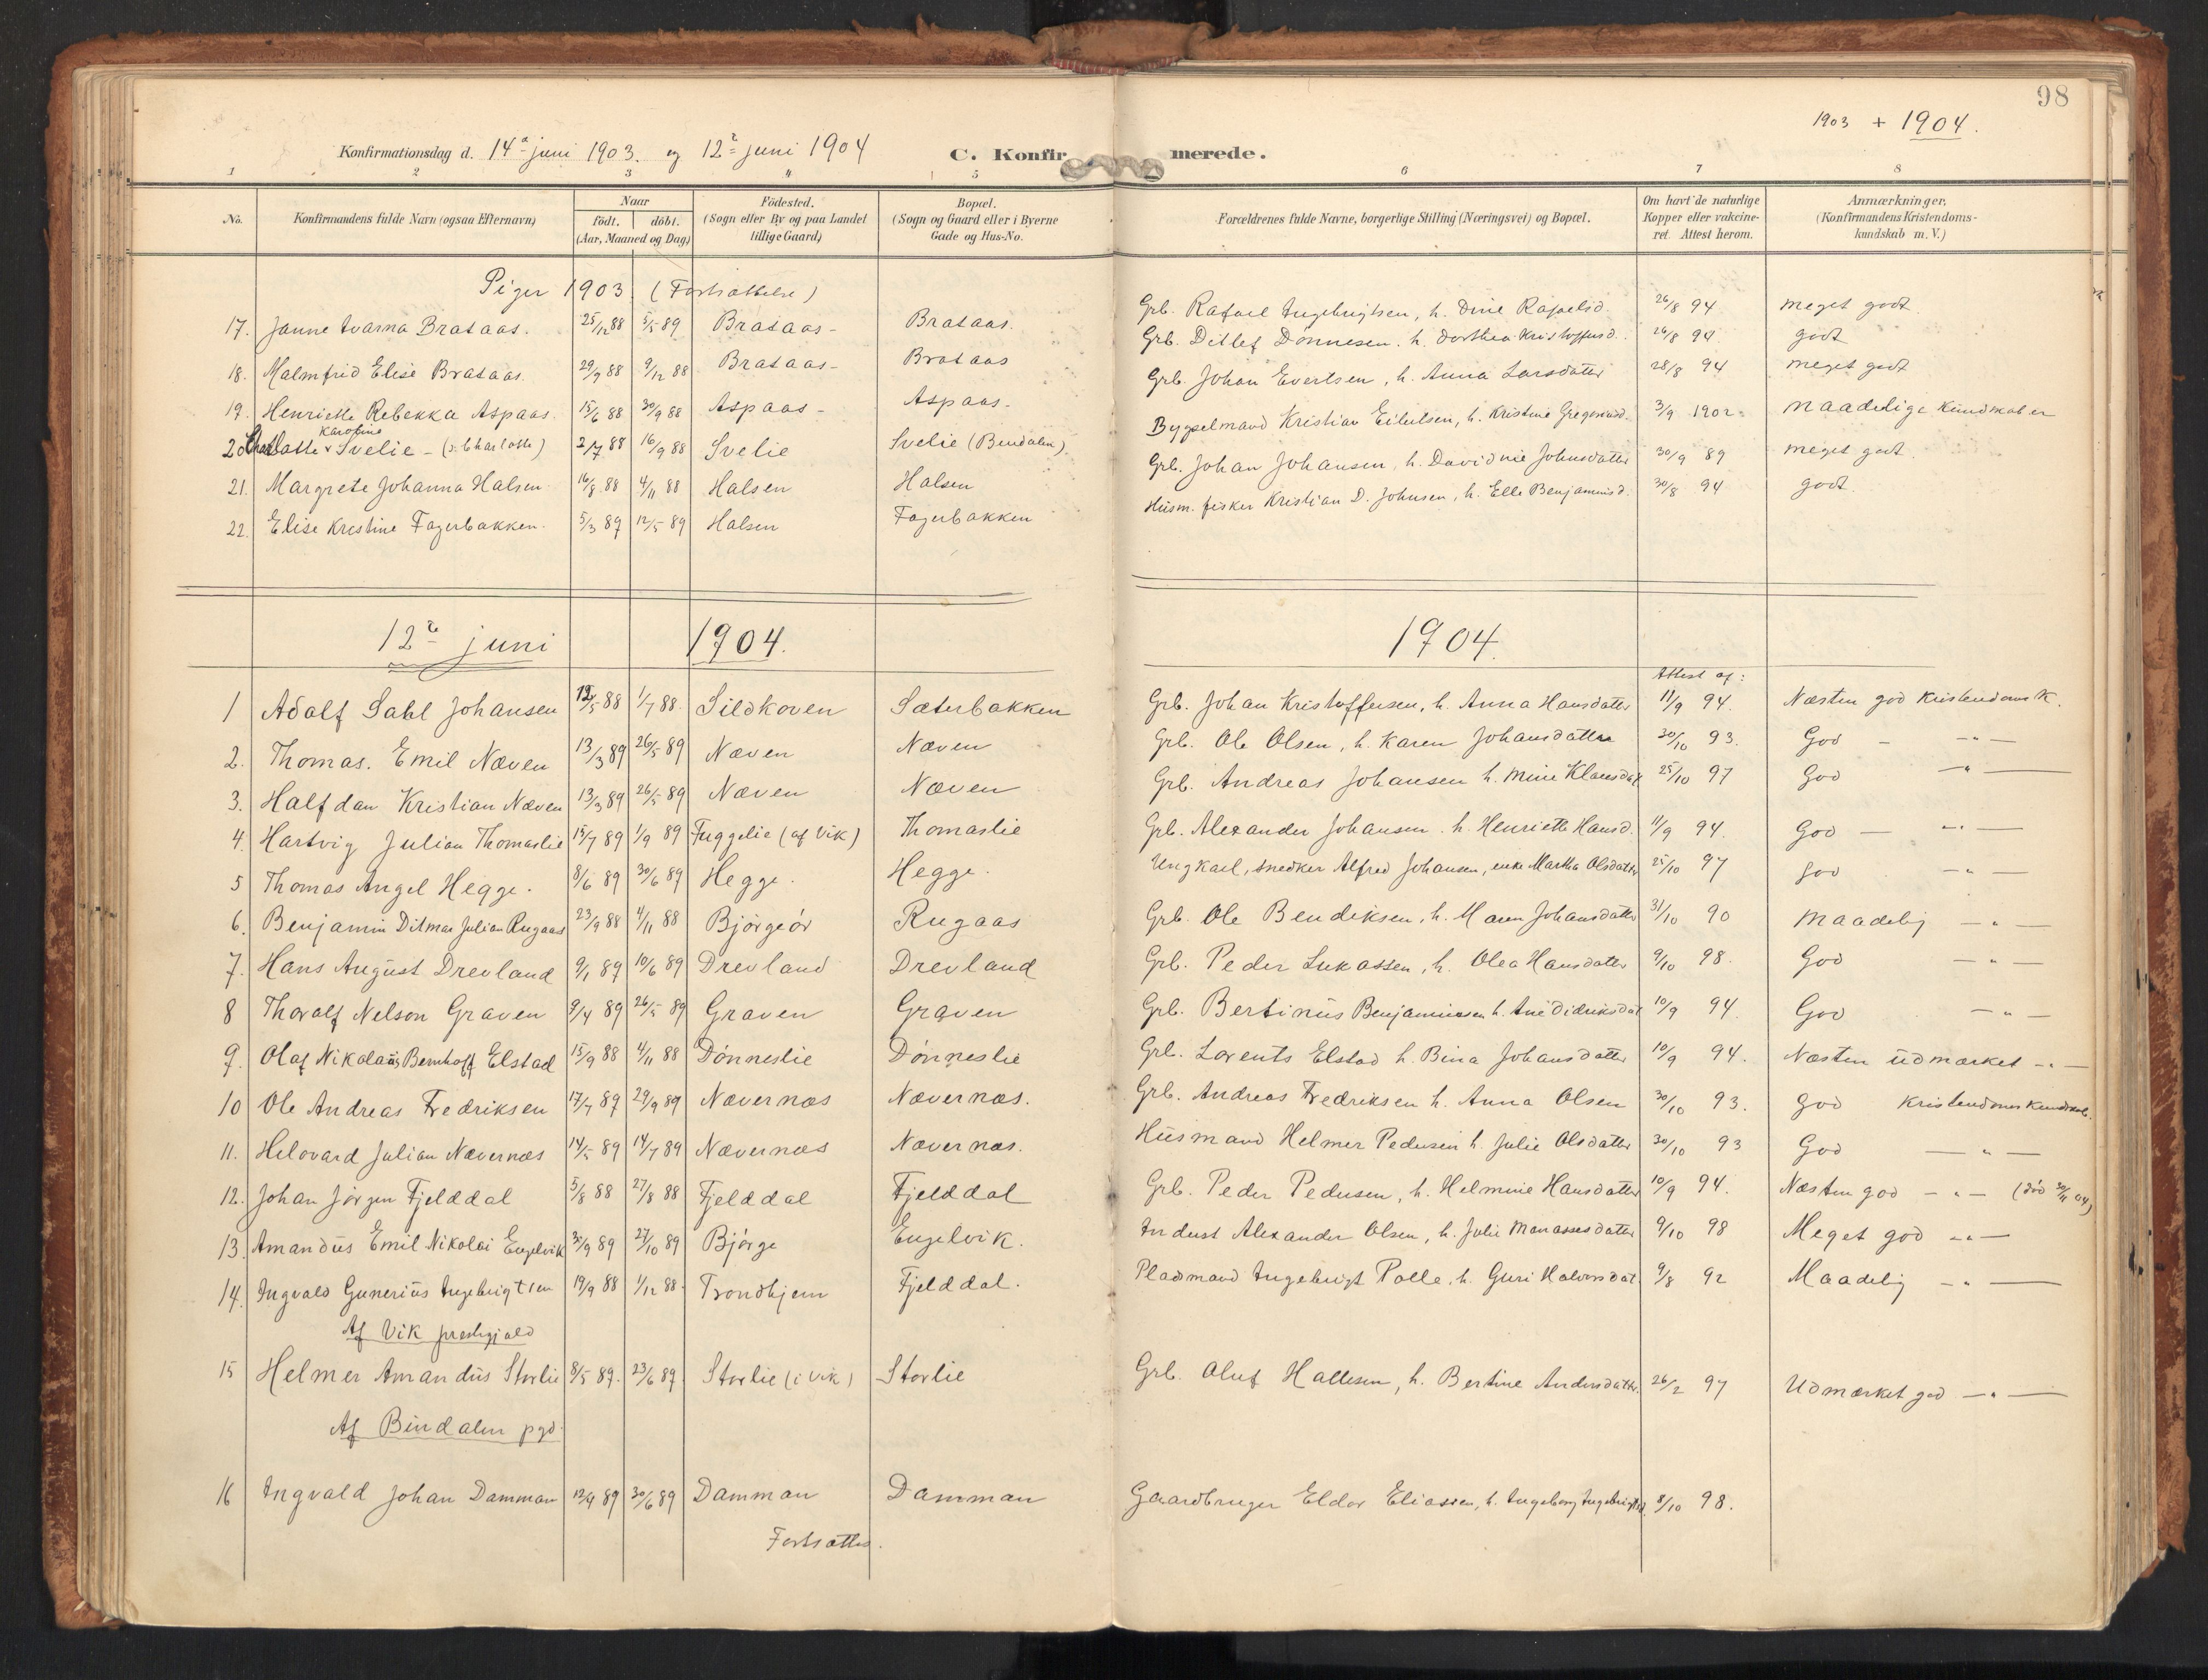 98
1903 + 1904.
Konfirmationsdag d. 14de juni 1903. og 12te juni 1904 C. Konfirmerede.
1 2 3 4 5 6 7 8
No. Konfirmandens fulde Navn (ogsaa Efternavn) Naar födt. döbt. (Aar, Maaned og Dag) Födested. (Sogn eller By og paa Landet tillige Gaard) Bopæl. (Sogn og Gaard eller i Byerne Gade og Hus-No. Forældrenes fulde Navne, borgerlige Stilling (Næringsvei) og Bopæl. Om havt de naturlige Kopper eller vakcineret. Attest herom. Anmærkninger. (Konfirmandens Kristendomskundskab m. V.)
Piger 1903 (Fortsættelse)
17. Janne Ivarna Brataas. 25/12 88 5/5 89 Brataas - Brataas. Grb. Rafael Ingebrigtsen, h. Dine Rafaelsd. 26/8 94 meget godt.
18. Malmfrid Elise Brataas. 29/9 88 9/12 88 Brataas - Brataas Grb. Ditlef Dønnesen. h. Dorthea Kristoffersd. 26/8 94. godt
19. Henriette Rebekka Aspaas 15/6 88 30/9 88 Aspaas - Aspaas. Grb. Johan Evertsen, h. Anna Larsdatter 28/8 94 meget godt
20 Charlotte Karoline Svelie - (o: Charlotte) 2/7 88 16/9 88 Svelie Svelie (Bindalen). Bygselmand Kristian Eilertsen, h. Kristine Gregersusd. 3/9 1902 - maadelige kundskaber
21. Margrete Johanna Halsen 16/8 88 4/11 88 Halsen Halsen Grb. Johan Johansen, h. Davidine Johnsdatter 30/9 89 meget godt.
22. Elise Kristine Fagerbakken. 5/3 89 12/5 89 Halsen Fagerbakken Husm. fisker Kristian D. Johnsen, h. Elle Benjaminsd. 30/8 94 godt.
12te juni 1904. 1904.
Attest af:
1 Adolf Sahl Johansen 12/5 88 1/7 88. Sildkoven Sæterbakken Grb. Johan Kristoffersen, h. Anna Hansdatter 11/9 94. Næsten god Kristendoms K.
2. Thomas. Emil Næven 13/3 89 26/5 89 Næven Næven Grb. Ole Olsen, h. Karen Johansdatter 30/10 93. God - - " -
3. Halfdan Kristian Næven 13/3 89 26/5 89 Næven Næven Grb. Andreas Johansen h. Mine Klausdat 25/10 97 God - " -
4. Hartvig Julian Thomaslie 15/7 89 1/9 89 Fuggelie (af Vik) Thomaslie Grb. Alexander Johansen. h. Henriette Hansd. 11/9 94. God - - " -
5 Thomas Angel Hegge. 8/6 89 30/6 89 Hegge. Hegge. Ungkarl, snedker Alfred Johansen, enke Martha Olsdatter 25/10 97 god - " -
6. Benjamin Ditmar Julian Rugaas 23/9 88 4/11 88 Björgeör Rugaas Grb. Ole Bendiksen, h. Maren Johansdatter 31/10 90 maadelig - " -
7. Hans August Drevland 9/1 89 10/6 89 Drevland Drevland Grb. Peder Lukassen, h. Olea Hansdatter 9/10 98. God - " -
8 Thoralf Nelson Graven 9/4 89 26/5 89 Graven Graven Grb. Bertinus Benjaminsen h. Ane Didriksdat 10/9 94. God - " -
9. Olaf Nikolaus Bernhoff Elstad 15/9 88 4/11 88 Dönneslie Dönneslie Grb. Lorents Elstad h. Bina Johansdatter 10/9 94. Næsten udmærket - " -
10 Ole Andreas Fredriksen 17/7 89 29/9 89 Nævernæs Nævernæs. Grb. Andreas Fredriksen h. Anna Olsen 30/10 93. god Kristendomskundskab.
11. Helovard Julian Nævernæs 14/5 89 14/7 89 Nævernæs Nævernæs. Husmand Helmer Pedersen h. Julie Olsdatter 30/10 93 God - " -
12. Johan Jörgen Fjelddal 5/8 88 27/8 88 Fjelddal Fjelddal Grb. Peder Pedersen, h. Helmine Hansdatter 10/9 94. Næsten god - " - (död 30/11 04)
13. Amandus Emil Nikolai Engelvik 30/9 89 27/10 89 Björge Engelvik. Inderst Alexander Olsen, h. Julie Manassesdatter 9/10 98 Meget god - " -
14. Ingvald Gunerius Ingebrigtsen 19/9 88 1/12 88. Trondhjem Fjelddal. Pladsmand Ingebrigt Polle, h. Guri Halvorsdat. 9/8 92 Maadelig - " -
Af Vik prestegjeld
15 Helmer Amandus Storlie 8/5 89. 23/6 89. Storlie (i Vik) Storlie Grb. Oluf Hallesen, h. Bertine Andersdatter. 26/2 97 Udmærket god - " -
Af Bindalen pgd.
16 Ingvald Johan Damman 12/4 89 30/6 89 Damman Damman Gaardbruger Eldor Eliassen, h. Ingeborg Ingebrigtsd. 8/10 98.
Fortsættes.